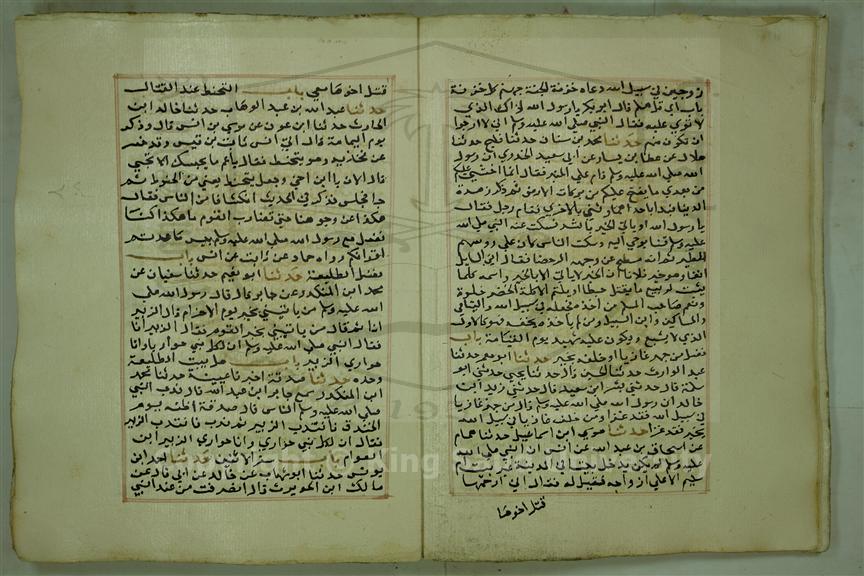 زوجين في سبيل الله دعاه خزنة الجنة كل خزنة
باب أي فل هلم قال ابو بكر يا رسول الله ذاك الذي
لا توي عليه فقال النبي صلى الله عليه وسلم اني لارجوا
ان تكون منهم حدثنا محمد بن سنان حدثنا فليح حدثنا
هلال عن عطا بن يسار عن أبي سعيد الخدري ان رسول
الله صلى الله عليه وسلم قام على المنبر فقال انما اخشى عليكم
من بعدي ما يفتح عليكم من بركات الارض ثم ذكر زهرة
الدنيا فبدا باحداهما وثنى بالاخرى فقام رجل فقال
يا رسول الله او ياتي الخير بالشر فسكت عنه النبي صلى الله
عليه وسلم قلنا يوحى اليه وسكت الناس كان على روسهم
الطير ثم انه مسح عن وجهه الرحضا فقال اين السايل
انفا او خير هو ثلاثا ان الخير لا ياتي الا بالخير وانه كلما
ينبت الربيع ما يقتل حبطا او يلم الا اكلة الخضر
ونعم صاحب المسلم من اخذه بحقه فجعله في سبيل الله واليتامى
والمساكين وابن السبيل ومن لم ياخذه بحقه فهو كالاكل
الذي لا يشبع ويكون عليه شهيدا يوم القيامة باب
فضل من جهز غازيا او خلفه بخير حدثنا ابو معمر حدثنا
عبد الوارث حدثنا الحسين قال حدثني يحيى حدثني ابو
سلمة قال حدثني بشر ابن سعيد قال حدثني زيد ابن
خالد ان رسول الله صلى الله عليه وسلم قال من جهز غازيا
في سبيل الله فقد غزا ومن خلف غازيا في سبيل الله
بخير فقد غزا حدثنا موسى ابن اسماعيل حدثنا همام
عن اسحاق بن عبد الله عن انس ان النبي صلى الله
عليه وسلم لم يكن يدخل بيتا في المدينة غير بيت ام
سليم الا على ازواجه فقيل له فقال اني ارحمها
قتل اخوها
قتل اخوها معي باب التحنط عند القتال
حدثنا عبد الله بن عبد الوهاب حدثنا خالد ابن
الحارث حدثنا ابن عون عن موسى بن انس قال وذكر
يوم اليمامة قال اتى انس ثابت بن قيس وقد حسر
عن فخذيه وهو يتحنط فقال يا عم ما يحبسك الا تجي
قال الان يا ابن اخي وجعل يتحنط يعني من الحنوط ثم
جا فجلس فذكر في الحديث انكشافا من الناس فقال
هكذا عن وجوهنا حتى نضارب القوم ما هكذا كنا
نفعل مع رسول الله صلى الله عليه وسلم بيس ما عودتم
اقرانكم رواه حماد عن ثابت عن انس باب
فضل الطليعة حدثنا ابو نعيم حدثنا سفيان عن
محمد ابن المنكدر عن جابر قال قال رسول الله صلى
الله عليه وسلم من ياتيني بخبر القوم يوم الاحزاب قال الزبير
انا ثم قال من ياتيني بخبر القوم قال الزبير انا
فقال النبي صلى الله عليه وسلم ان لكل نبي حواريا
وحواري الزبير باب هل يبعث الطليعة
وحده حدثنا صدقة اخبرنا ابن عيينة حدثنا محمد
ابن المنكدر سمع جابر ابن عبد الله قال ندب النبي
صلى الله عليه وسلم الناس قال صدقة اظنه يوم
الخندق فانتدب الزبير ثم ندب فانتدب الزبير
فقال ان لكل نبي حواري وان حواري الزبير ابن
العوام باب سفر الاثنين حدثنا احمد ابن
يونس حدثنا ابو شهاب عن خالد عن ابي قلابة عن
مالك ابن الحويرث قال انصرفت من عند النبي